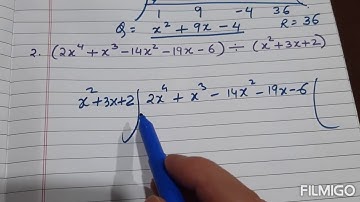 1 9 -4 36
Q = x² + 9x - 4 R = 36
2. (2x⁴ + x³ - 14x² - 19x - 6) ÷ (x² + 3x + 2)
x² + 3x + 2 ) 2x⁴ + x³ - 14x² - 19x - 6 (
FILMIGO